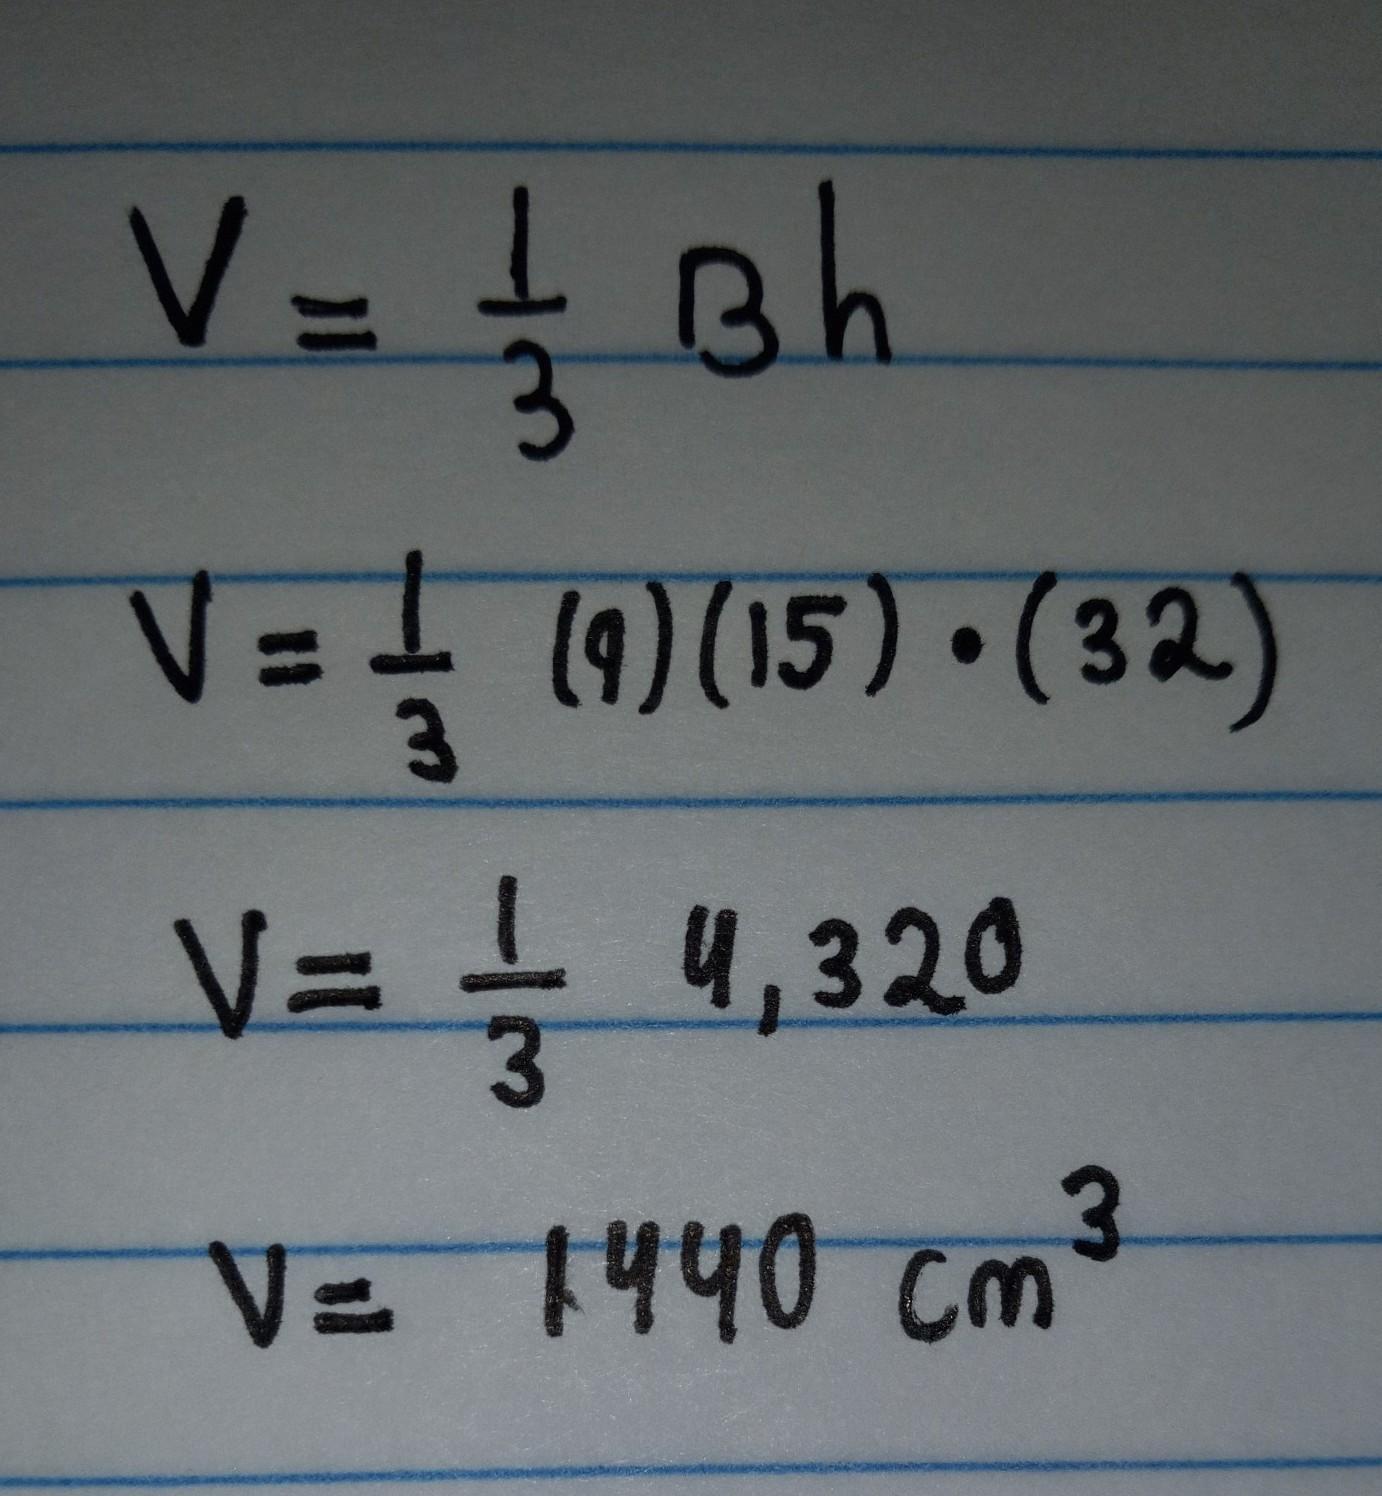 V = 1/3 Bh
V = 1/3 (9)(15) · (32)
V = 1/3 4,320
V = 1440 cm³